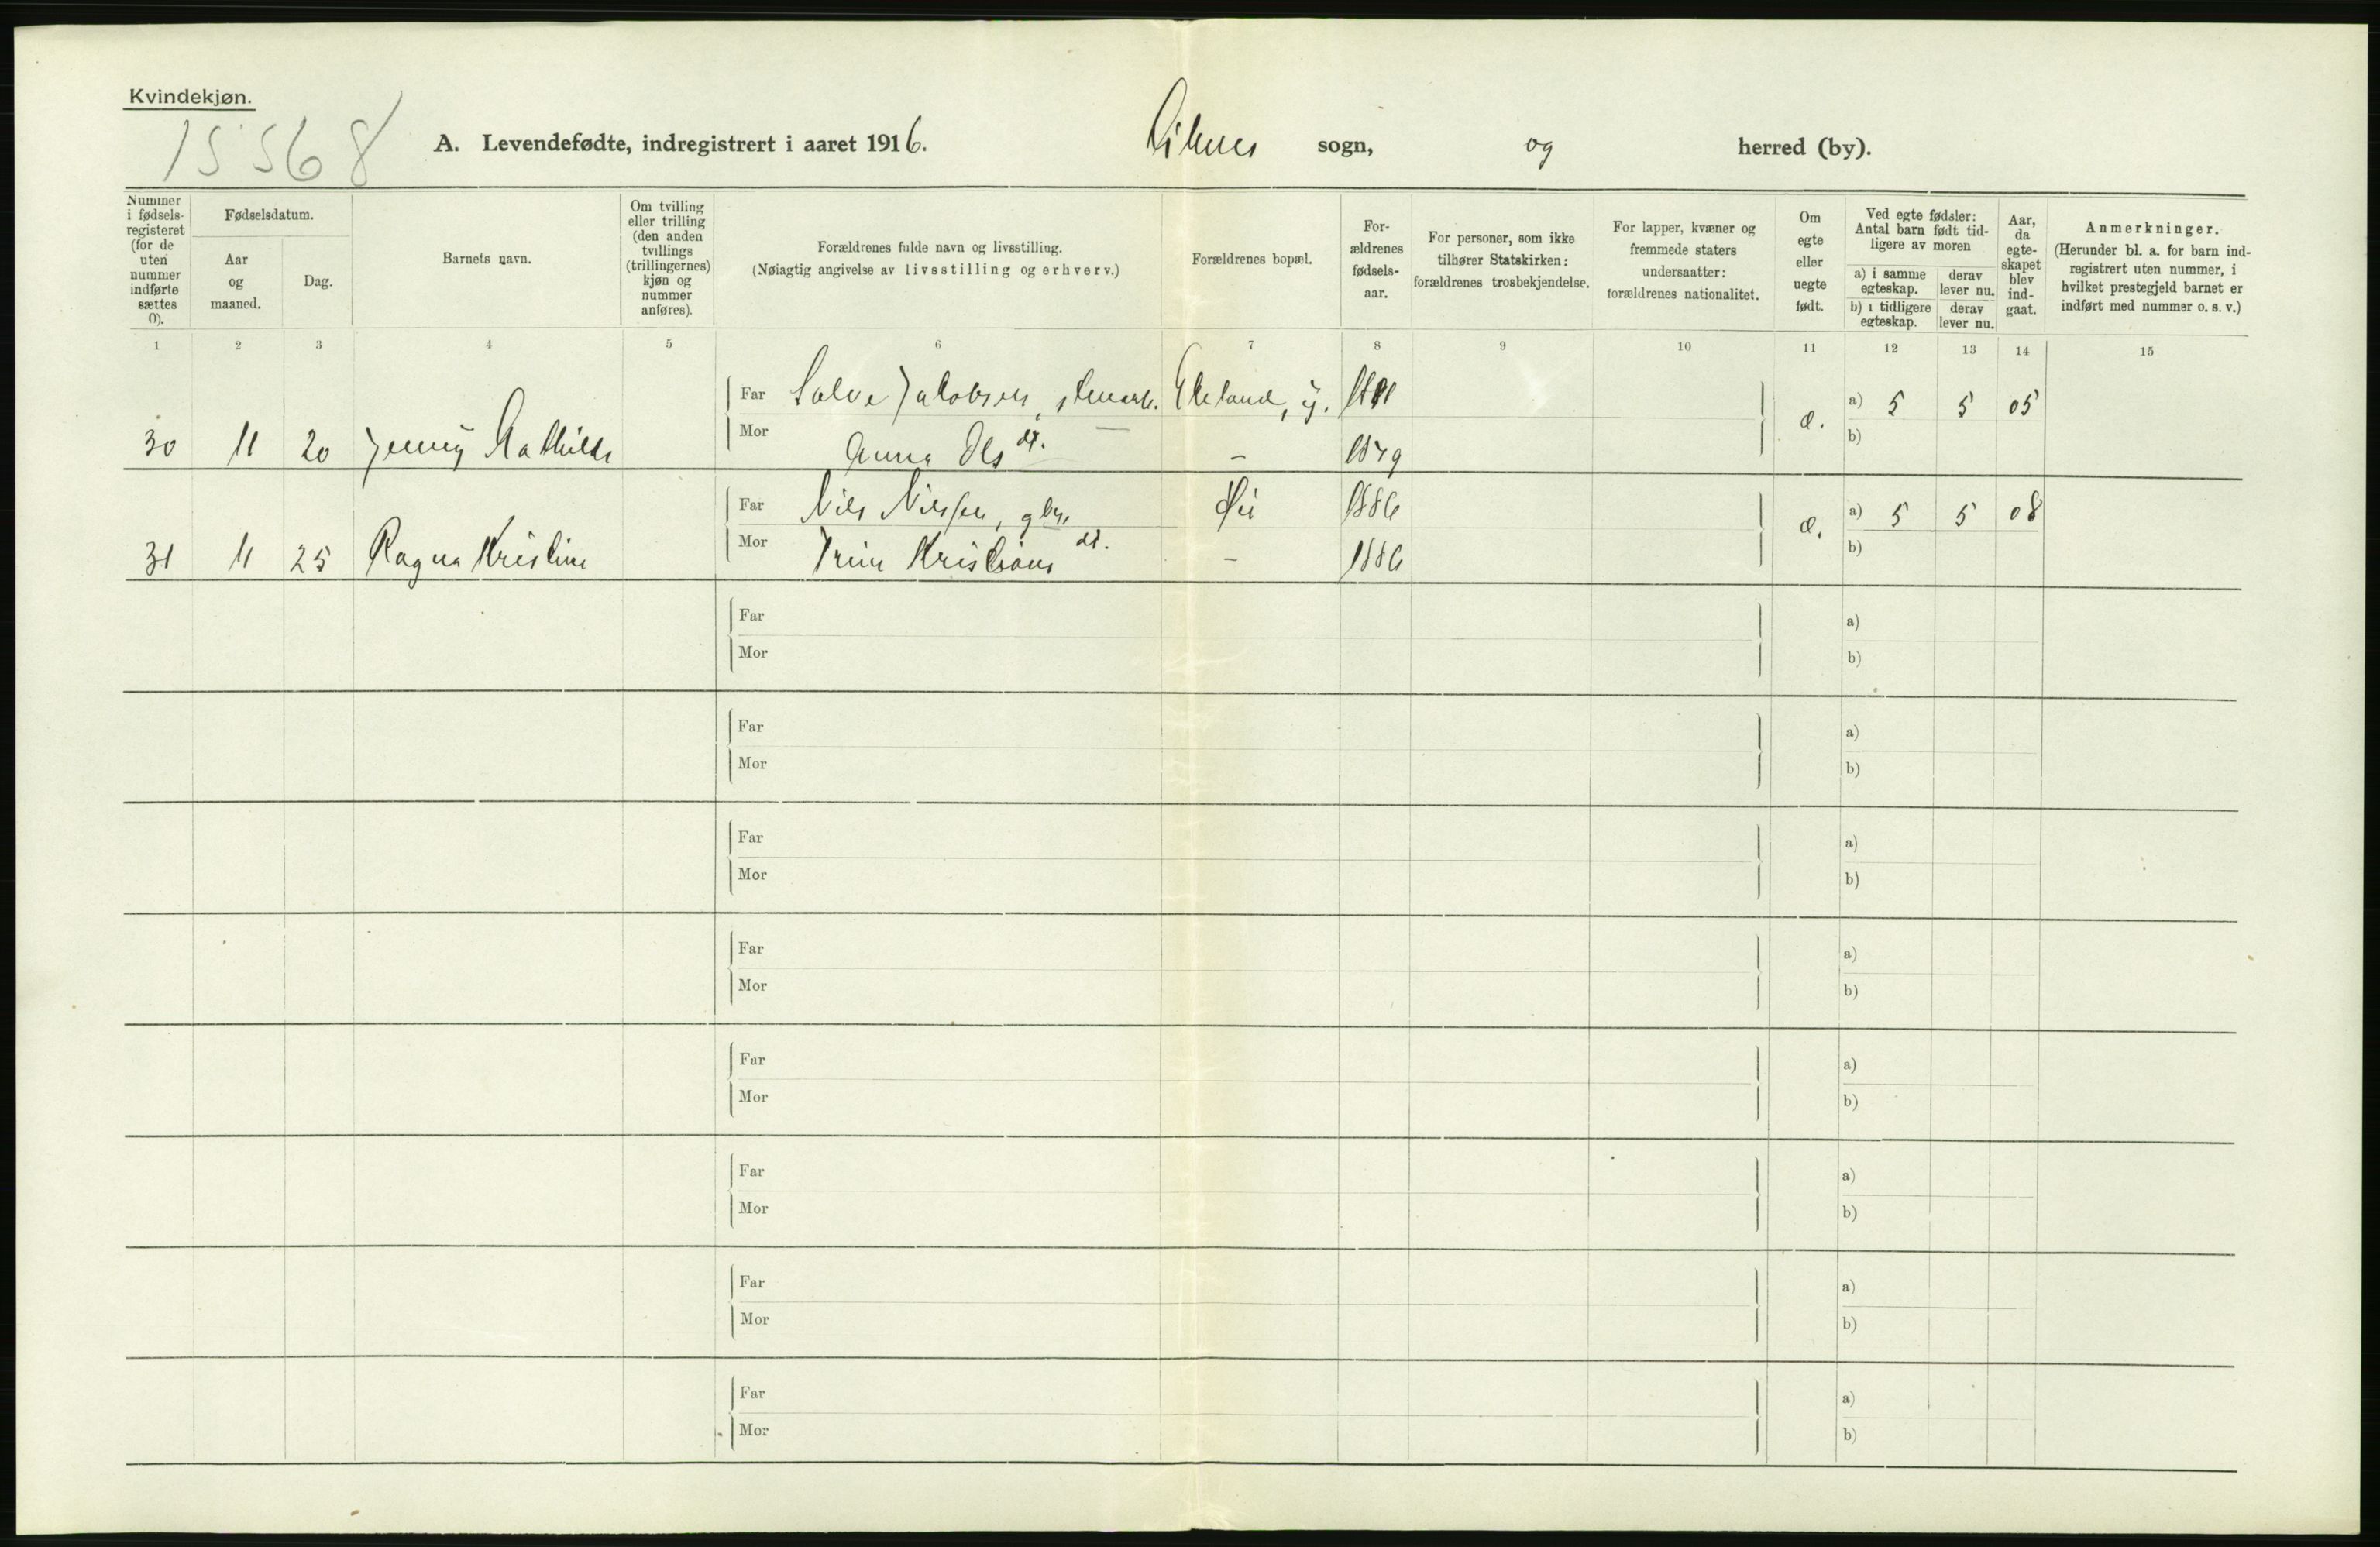 Kvindekjøn.
15568
A. Levendefødte, indregistrert i aaret 1916. sogn, og herred (by).
Nummer i fødsels-registeret (for de uten nummer indførte sættes 0).
Fødselsdatum.
Aar og maaned.
Dag.
Barnets navn.
Om tvilling eller trilling (den anden tvillings (trillingernes) kjøn og nummer anføres).
Forældrenes fulde navn og livsstilling.
(Nøiagtig angivelse av livsstilling og erhverv.)
Forældrenes bopæl.
For-ældrenes fødsels-aar.
For personer, som ikke tilhører Statskirken: forældrenes trosbekjendelse.
For lapper, kvæner og fremmede staters undersaatter: forældrenes nationalitet.
Om egte eller uegte født.
Ved egte fødsler: Antal barn født tid-ligere av moren
a) i samme egteskap.
derav lever nu.
b) i tidligere egteskap.
derav lever nu.
Aar, da egte-skapet blev ind-gaat.
Anmerkninger.
(Herunder bl. a. for barn ind-registrert uten nummer, i hvilket prestegjeld barnet er indført med nummer o. s. v.)
1 2 3 4 5 6 7 8 9 10 11 12 13 14 15
Far Salve Jakobsen, stenarb. Ekeland, y.
a) 5 5 05
30 11 20 Jenny Mathilde
Mor Anna Olsdt. – 1879
e.
b)
Far Nils Nilssen, gbr. 1886
a) 5 5 08
31 11 25 Ragna Kristine
Mor Trine Kristiansdt. – 1886
e.
b)
Far a)
Mor b)
Far a)
Mor b)
Far a)
Mor b)
Far a)
Mor b)
Far a)
Mor b)
Far a)
Mor b)
Far a)
Mor b)
Far a)
Mor b)